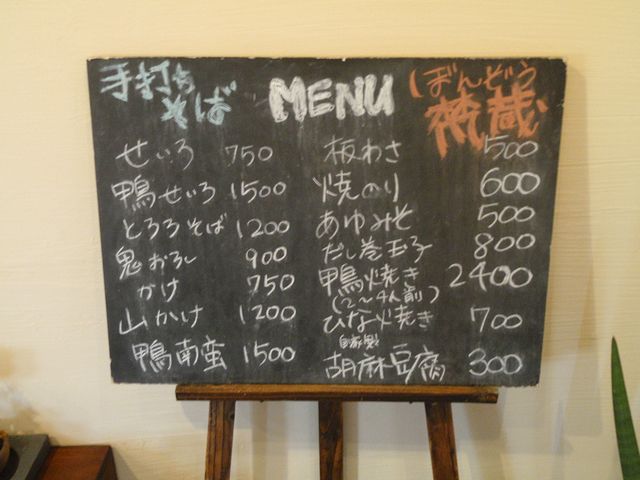 手打ち
そば
MENU
ぼんぞう
せいろ 750
鴨せいろ 1500
とろろそば 1200
鬼おろし 900
かけ 750
山かけ 1200
鴨南蛮 1500
板わさ 500
焼のり 600
あゆみそ 500
だし巻玉子 800
鴨焼き 2400
(2〜4人前)
ひな焼き 700
自家製
胡麻豆腐 300